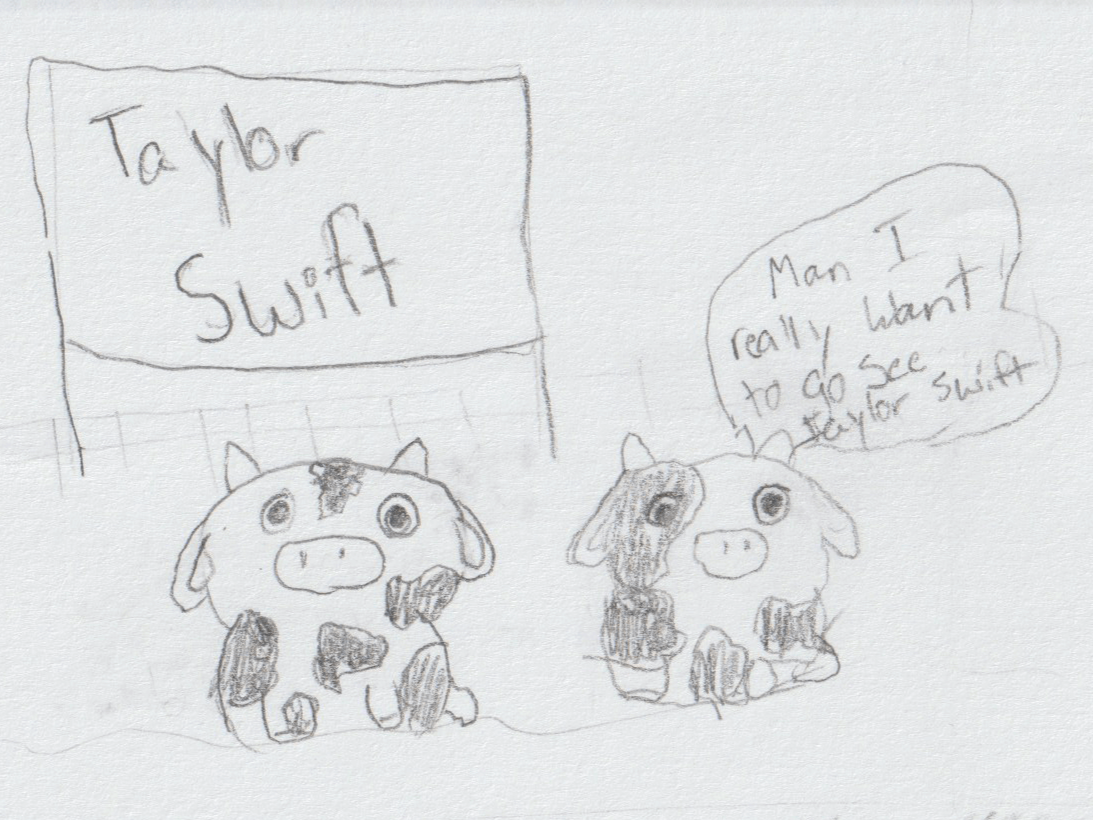 Taylor
Swift
Man I
really want
to go see
Taylor Swift